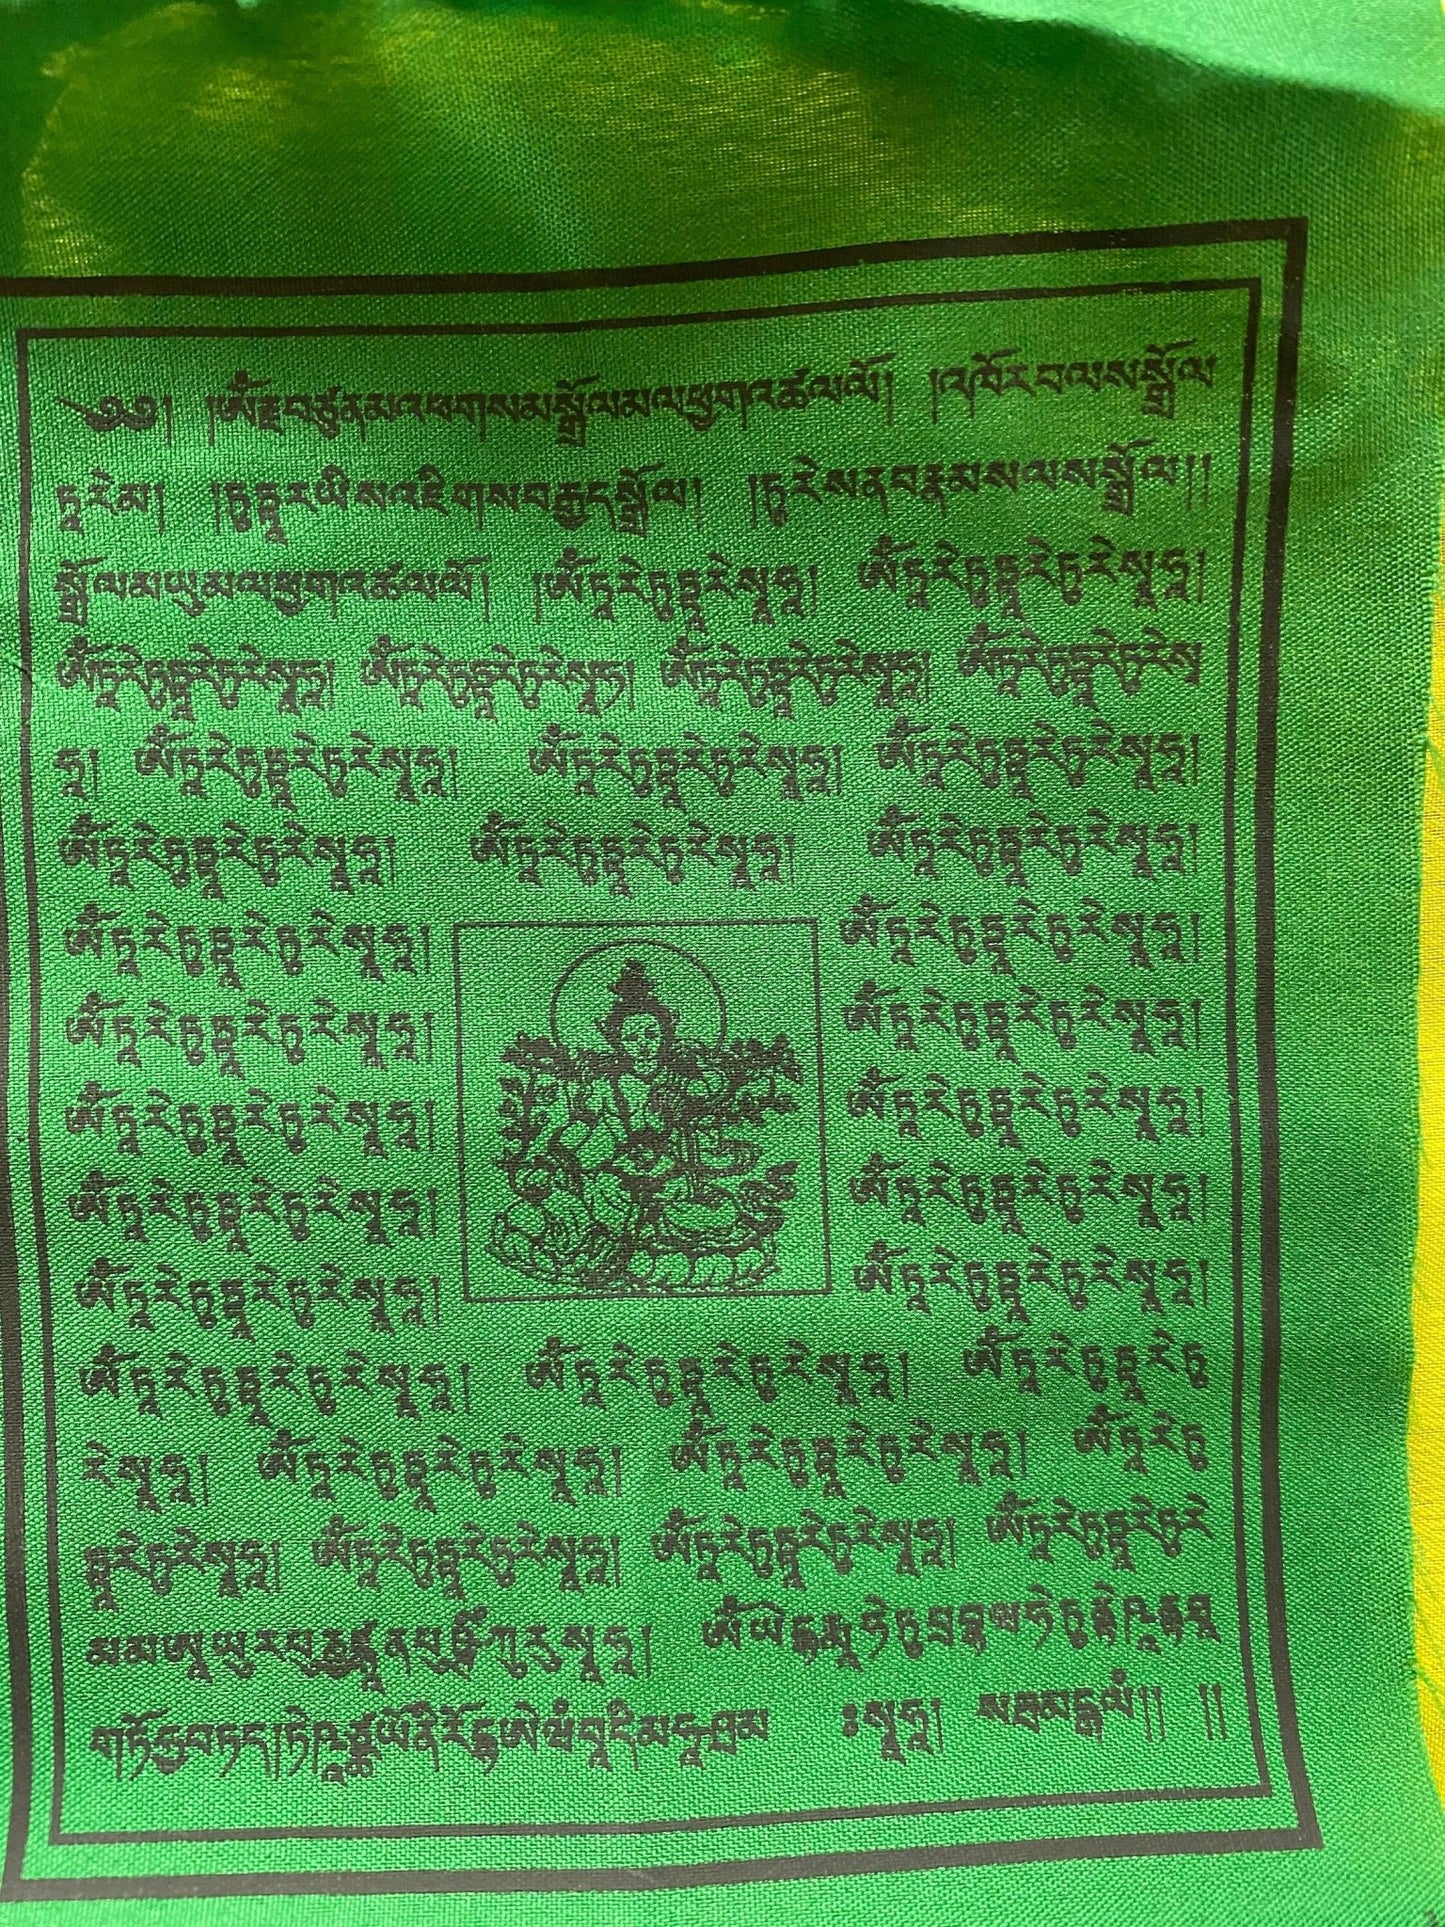 ༄༅། །ཨོཾ་རྗེ་བཙུན་མ་འཕགས་མ་སྒྲོལ་མ་ལ་ཕྱག་འཚལ་ལོ། །འཁོར་བ་ལས་སྒྲོལ་
ཏཱ་རེ་མ། །ཏུཏྟཱ་ར་ཡིས་འཇིགས་བརྒྱད་སྒྲོལ། །ཏུ་རེས་ན་བ་རྣམས་ལས་སྒྲོལ།།
སྒྲོལ་མ་ཡུམ་ལ་ཕྱག་འཚལ་ལོ། །ཨོཾ་ཏཱ་རེ་ཏུཏྟཱ་རེ་སྭཱ་ཧཱ། ཨོཾ་ཏཱ་རེ་ཏུཏྟཱ་རེ་ཏུ་རེ་སྭཱ་ཧཱ།
ཨོཾ་ཏཱ་རེ་ཏུཏྟཱ་རེ་ཏུ་རེ་སྭཱ་ཧཱ། ཨོཾ་ཏཱ་རེ་ཏུཏྟཱ་རེ་ཏུ་རེ་སྭཱ་ཧཱ། ཨོཾ་ཏཱ་རེ་ཏུཏྟཱ་རེ་ཏུ་རེ་སྭཱ་ཧཱ། ཨོཾ་ཏཱ་རེ་ཏུཏྟཱ་རེ་ཏུ་རེ་སྭ
ཧཱ། ཨོཾ་ཏཱ་རེ་ཏུཏྟཱ་རེ་ཏུ་རེ་སྭཱ་ཧཱ། ཨོཾ་ཏཱ་རེ་ཏུཏྟཱ་རེ་ཏུ་རེ་སྭཱ་ཧཱ། ཨོཾ་ཏཱ་རེ་ཏུཏྟཱ་རེ་ཏུ་རེ་སྭཱ་ཧཱ།
ཨོཾ་ཏཱ་རེ་ཏུཏྟཱ་རེ་ཏུ་རེ་སྭཱ་ཧཱ། ཨོཾ་ཏཱ་རེ་ཏུཏྟཱ་རེ་ཏུ་རེ་སྭཱ་ཧཱ། ཨོཾ་ཏཱ་རེ་ཏུཏྟཱ་རེ་ཏུ་རེ་སྭཱ་ཧཱ།
ཨོཾ་ཏཱ་རེ་ཏུཏྟཱ་རེ་ཏུ་རེ་སྭཱ་ཧཱ། ཨོཾ་ཏཱ་རེ་ཏུཏྟཱ་རེ་ཏུ་རེ་སྭཱ་ཧཱ།
ཨོཾ་ཏཱ་རེ་ཏུཏྟཱ་རེ་ཏུ་རེ་སྭཱ་ཧཱ། ཨོཾ་ཏཱ་རེ་ཏུཏྟཱ་རེ་ཏུ་རེ་སྭཱ་ཧཱ།
ཨོཾ་ཏཱ་རེ་ཏུཏྟཱ་རེ་ཏུ་རེ་སྭཱ་ཧཱ། ཨོཾ་ཏཱ་རེ་ཏུཏྟཱ་རེ་ཏུ་རེ་སྭཱ་ཧཱ།
ཨོཾ་ཏཱ་རེ་ཏུཏྟཱ་རེ་ཏུ་རེ་སྭཱ་ཧཱ། ཨོཾ་ཏཱ་རེ་ཏུཏྟཱ་རེ་ཏུ་རེ་སྭཱ་ཧཱ།
ཨོཾ་ཏཱ་རེ་ཏུཏྟཱ་རེ་ཏུ་རེ་སྭཱ་ཧཱ། ཨོཾ་ཏཱ་རེ་ཏུཏྟཱ་རེ་ཏུ་རེ་སྭཱ་ཧཱ།
ཨོཾ་ཏཱ་རེ་ཏུཏྟཱ་རེ་ཏུ་རེ་སྭཱ་ཧཱ། ཨོཾ་ཏཱ་རེ་ཏུཏྟཱ་རེ་ཏུ་རེ་སྭཱ་ཧཱ། ཨོཾ་ཏཱ་རེ་ཏུཏྟཱ་རེ་ཏུ
རེ་སྭཱ་ཧཱ། ཨོཾ་ཏཱ་རེ་ཏུཏྟཱ་རེ་ཏུ་རེ་སྭཱ་ཧཱ། ཨོཾ་ཏཱ་རེ་ཏུཏྟཱ་རེ་ཏུ་རེ་སྭཱ་ཧཱ། ཨོཾ་ཏཱ་རེ་ཏུ
ཏྟཱ་རེ་ཏུ་རེ་སྭཱ་ཧཱ། ཨོཾ་ཏཱ་རེ་ཏུཏྟཱ་རེ་ཏུ་རེ་སྭཱ་ཧཱ། ཨོཾ་ཏཱ་རེ་ཏུཏྟཱ་རེ་ཏུ་རེ་སྭཱ་ཧཱ། ཨོཾ་ཏཱ་རེ་ཏུཏྟཱ་རེ་ཏུ་རེ
མ་མ་ཨཱ་ཡུར་པུཎྱེ་ཛྙཱ་ན་པུཥྚིཾ་ཀུ་རུ་སྭཱ་ཧཱ། ཨོཾ་ཡེ་དྷརྨཱ་ཧེ་ཏུ་པྲ་བྷ་ཝཱ་ཧེ་ཏུནྟེ་ཥཱནྟ་ཐཱ
ག་ཏོ་ཧྱ་བ་དཏ། ཏེ་ཥཱཉྩ་ཡོ་ནི་རོ་དྷ་ཨེ་ཝཾ་བཱ་དཱི་མ་ཧཱ་ཤྲ་མ ཿསྭཱ་ཧཱ།